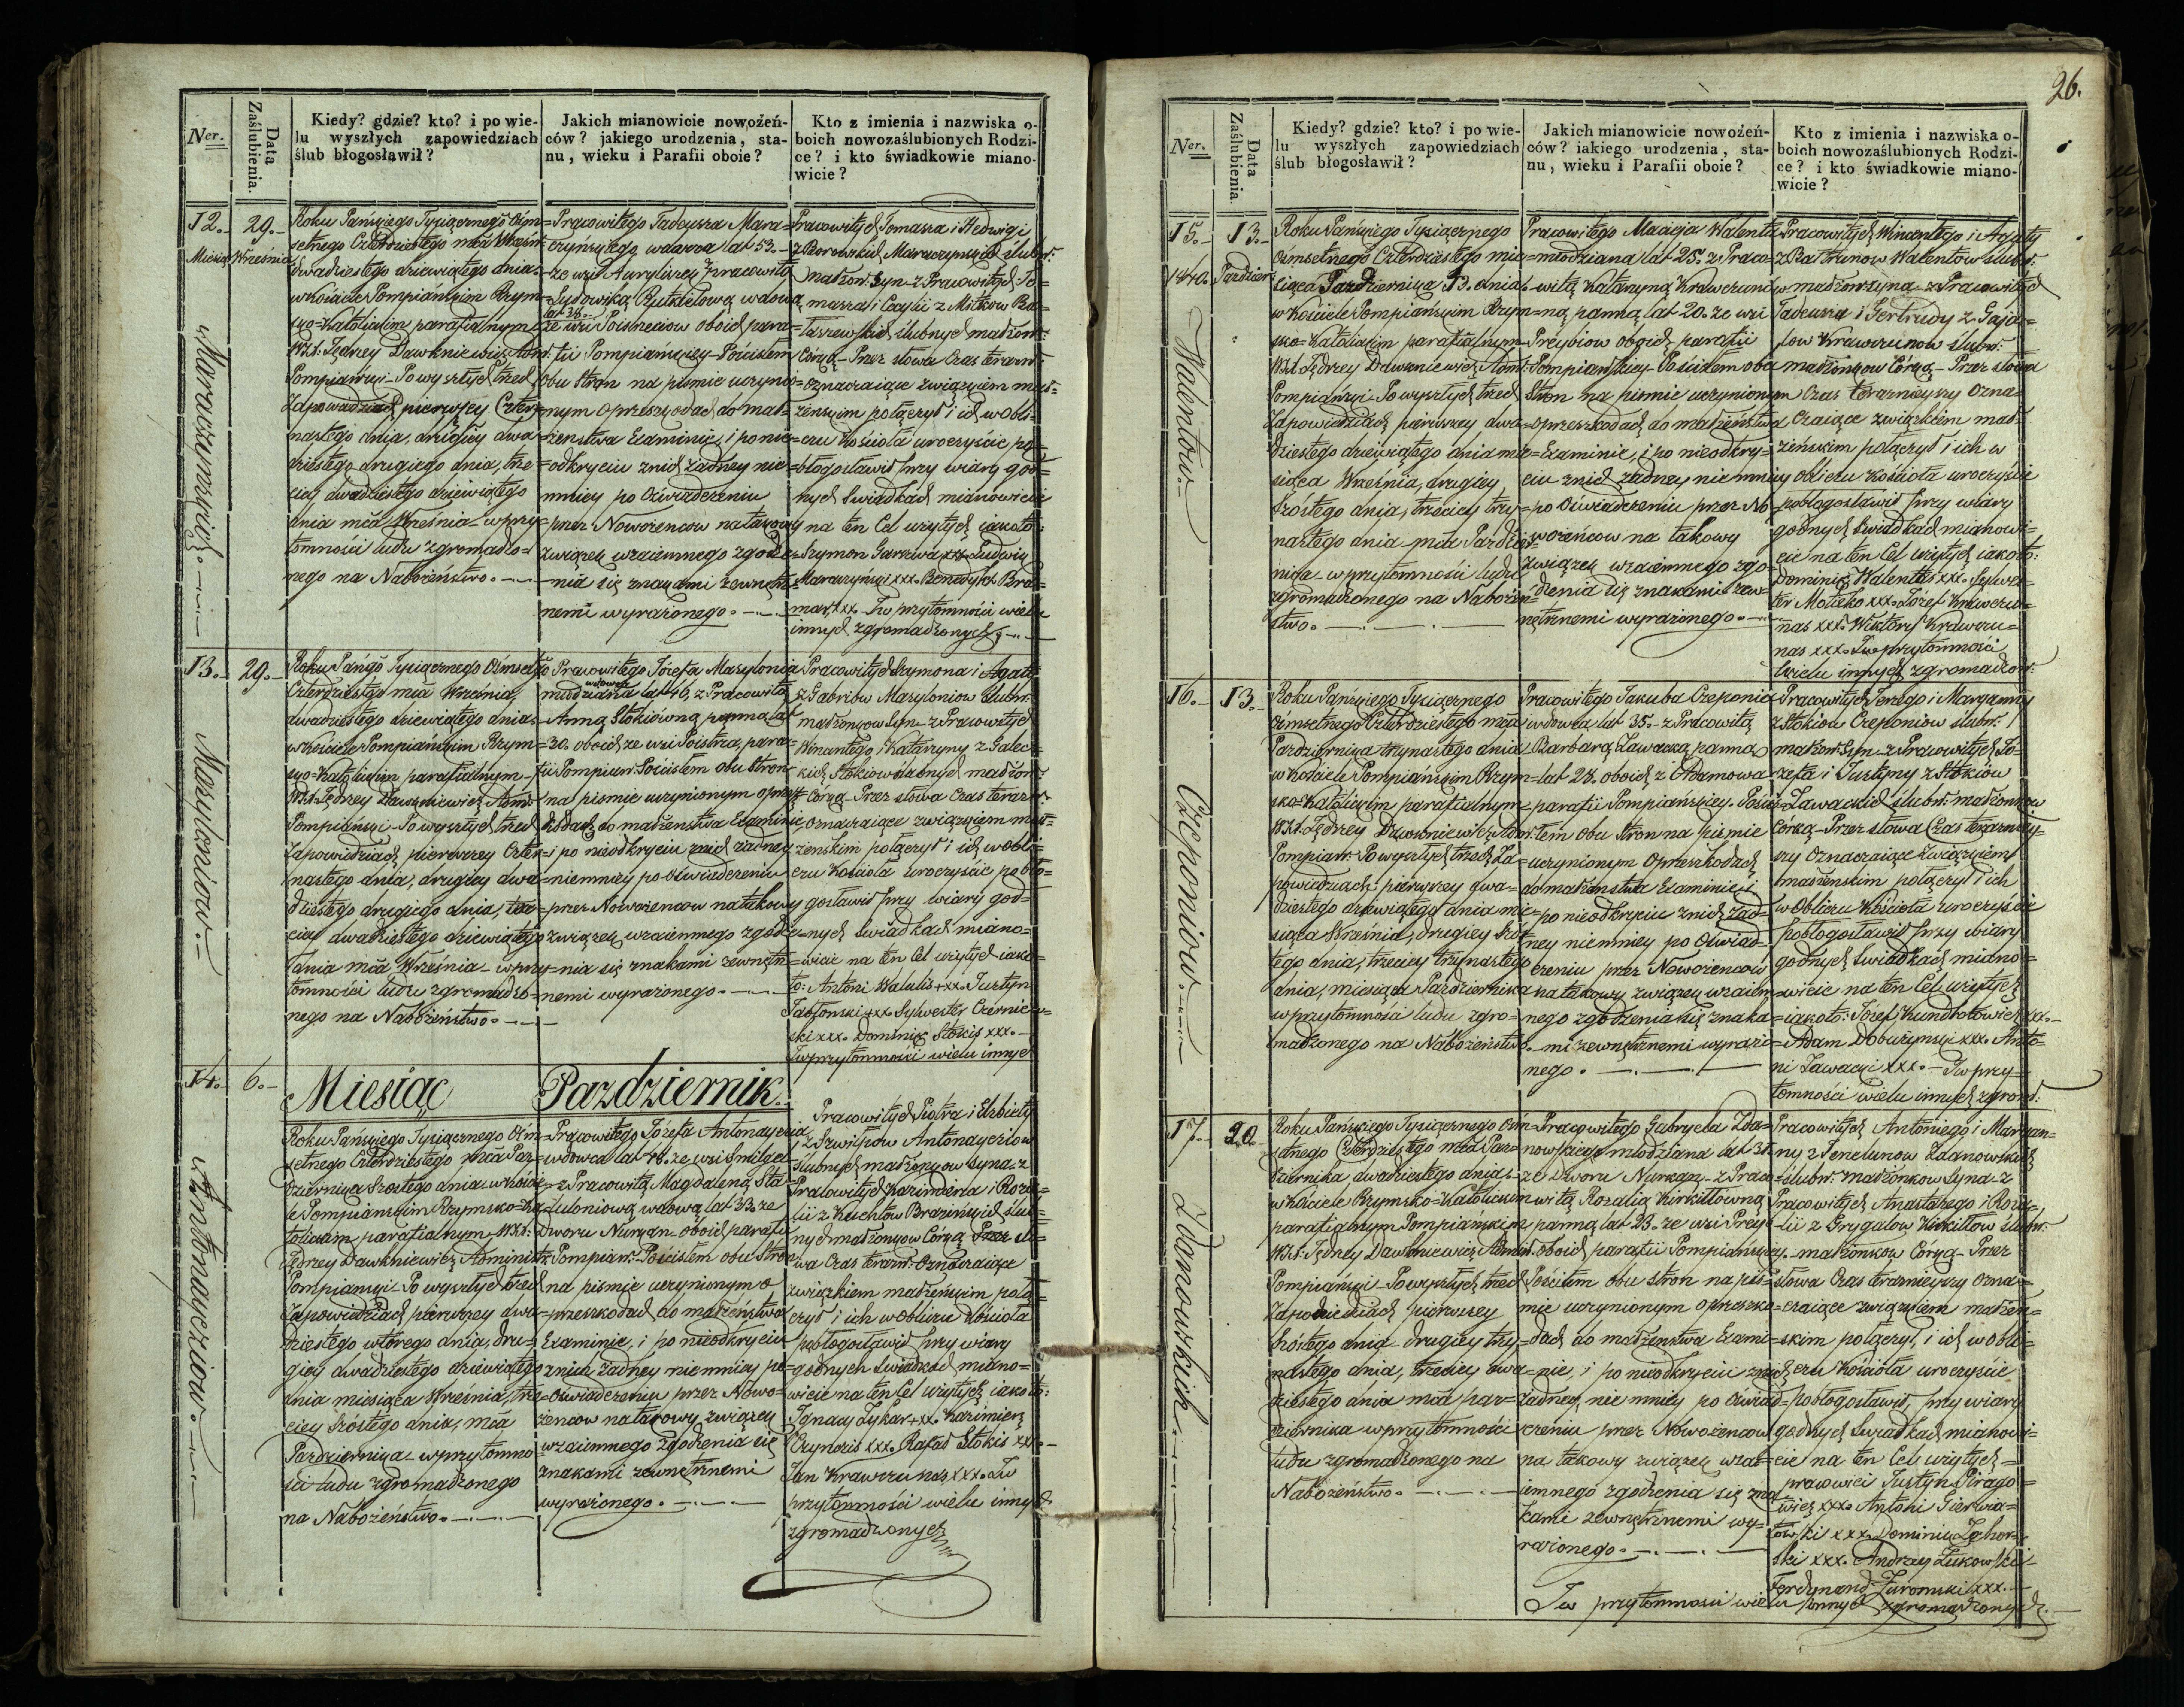 Ner.
Data
Zaślubienia.
Kiedy? gdzie? kto? i po wie-
lu wyszłych zapowiedziach
ślub błogosławił?
Jakich mianowicie nowożeń-
ców? jakiego urodzenia, sta-
nu, wieku i Parafii oboie?
Kto z imienia i nazwiska o-
boich nowozaślubionych Rodzi-
ce? i kto świadkowie miano-
wicie?
12.
29.
Miesiąc Września
Roku Pańskiego Tysiącznego Ośm-
setnego Czterdziestego
dwadziestego dziewiątego dnia
w Kościele Pompiańskim Rzym-
sko-Katolickim parafialnym
Jędrzey Dawkniewicz
Pompiański Po wyszłych trzech
Zapowiedziach pierwszey Czter-
nastego dnia, drugiey dwa-
dziestego drugiego dnia, trze-
ciey dwadziestego dziewiątego
dnia mca Września w przy-
tomności ludu zgromadzo-
nego na Nabożeństwo.
Pracowitego Tadeusza Mara-
czyńskiego wdowca lat 53.
ze wsi z Pracowitą
Ludowiką wdową
lat 38.
ze wsi oboich para-
fii Pompiańskiey Pościsłem
obu Stron na pismie uczynio-
nym o przeszkodach do mał-
żeństwa Examinie, i po nie-
odkryciu znich żadney nie-
mniey po Oświadczeniu
przez Nowożencow na takowy
związek wzaiemnego zgodze-
nia się znakami zewnętrz-
nemi wyrażonego.
Pracowitych Tomasza i Hedwigi
z Borowskich Maraczyńskich ślubn:
małżon: Syn z Pracowitych To-
masza i Cecylii z Mitkow
ślubnych małżon:
Córką Przez słowa Czas teraz:
oznaczaiące związkiem mał-
żenskim połączył i ich w Obli-
czu Kościoła uroczyście po-
błogosławił przy wiary god-
nych Swiadkach mianowicie
na ten Cel użytych iakoto:
Szymon xxx. Ludwik
Maraczyński xxx. Benedykt
xxx. I w przytomności wielu
innych zgromadzonych
Maraczynskich.
13.
29.
Roku Pańsº Tysiącznego Ośmsetº
Czterdziestego mca Września
dwadziestego dziewiątego dnia
w Kościele Pompiańskim Rzym-
sko-Katolickim parafialnym
Jędrzey Dawkniewicz
Pompiański Po wyszłych trzech
Zapowiedziach pierwszey Czter-
nastego dnia, drugiey dwa-
dziestego drugiego dnia, trze-
ciey dwadziestego dziewiątego
dnia mca Września w przy-
tomności ludu zgromadzo-
nego na Nabożeństwo.
Pracowitego Józefa Masylonia
wdowca
młodziana lat 46, z Pracowitą
Anną Stokiówną panną lat
30. oboich ze wsi para-
fii Pompian: Pościsłem obu Stron
na pismie uczynionym o przesz-
kodach do małżenstwa Examinie,
i po nieodkryciu znich żadney
niemniey po Oświadczeniu
przez Nowożencow na takowy
związek wzaiemnego zgodze-
nia się znakami zewnętrz-
nemi wyrażonego.
Pracowitych Szymona i Agaty
z Gabrisow Masyloniow ślubn:
małżonkow Syn z Pracowitych
Wincentego i Katarzyny z Galec-
kich Stokiow ślubnych małżon:
Córką Przez słowa Czas teraz:
oznaczaiące związkiem mał-
żenskim połączył i ich w Obli-
czu Kościoła uroczyście pobło-
gosławił przy wiary god-
nych Swiadkach miano-
wicie na ten Cel użytych iako-
to: Antoni Walulis xxx. Justyn
Jabłonski xxx. Sylwester Czerniew-
ski xxx. Dominik Stokis xxx.
I w przytomności wielu innych
Masyloniow.
14.
6.
Miesiąc Pazdziernik.
Roku Pańskiego Tysiącznego Ośm-
setnego Czterdziestego mca Paz-
dziernika Szostego dnia w Koście-
le Pompianskim Rzymsko-Ka-
tolickim parafialnym
Jędrzey Dawkniewicz Administr:
Pompianski Po wyszłych trzech
Zapowiedziach pierwszey dwa-
dziestego wtorego dnia, dru-
giey dwadziestego dziewiątego
dnia miesiąca Września, trze-
ciey Szóstego dnia, mca
Pazdziernika w przytomno-
ści ludu zgromadzonego
na Nabożeństwo.
Pracowitego Józefa Antonayczia
wdowca lat 48. ze wsi Smilgel
z Pracowitą Magdaleną
wdową lat 33. ze
Dworu Nurkan oboich parafii
Pompian: Pościsłem obu Stron
na pismie uczynionym o
przeszkodach do małżenstwa
Examinie, i po nieodkryciu
znich żadney niemniey po
Oświadczeniu przez Nowo-
żencow na takowy związek
wzaiemnego zgodzenia się
znakami zewnętrznemi
wyrażonego.
Pracowitych Piotra i Elżbiety
z Antonaycziow
ślubnych małżonkow Syna z
Pracowitych Kazimierza i Roza-
lii z ślub-
nych małżonkow Córką Przez sło-
wa Czas teraz: oznaczaiące
związkiem małżeńskim połą-
czył i ich w obliczu Kościoła
pobłogosławił przy wiary
godnych Swiadkach miano-
wicie na ten Cel użytych iakoto:
Ignacy xxx. Kazimierz
xxx. Rafał Stokis xxx.
Jan Krawczunas xxx. I w
przytomności wielu innych
zgromadzonych
Antonaycziow.
26.
Ner.
Data
Zaślubienia.
Kiedy? gdzie? kto? i po wie-
lu wyszłych zapowiedziach
ślub błogosławił?
Jakich mianowicie nowożeń-
ców? iakiego urodzenia, sta-
nu, wieku i Parafii oboie?
Kto z imienia i nazwiska o-
boich nowozaślubionych Rodzi-
ce? i kto świadkowie miano-
wicie?
15.
13.
1840. Pazdzier:
Roku Pańskiego Tysiącznego
Ośmsetnego Czterdziestego mie-
siąca Pazdziernika 13. dnia
w Kościele Pompiańskim Rzym-
sko-Katolickim parafialnym
Jędrzey Dawkniewicz Adm:
Pompiański Po wyszłych trzech
Zapowiedziach pierwszey dwa-
dziestego dziewiątego dnia mie-
siąca Września, drugiey
Szóstego dnia, trzeciey trzy-
nastego dnia mca Pazdzier-
nika w przytomności ludu
zgromadzonego na Nabożeń-
stwo.
Pracowitego Macieja Walenta
młodziana lat 25. z Praco-
witą Katarzyną Krawczuno-
ną panną lat 20. ze wsi
oboich parafii
Pompiańskiey Pościsłem obu
Stron na pismie uczynionym
o przeszkodach do małżeństwa
Examinie, i po nieodkry-
ciu znich żadney nie mniey
po Oświadczeniu przez No-
wożencow na takowy
związek wzaiemnego zgo-
dzenia się znakami zew-
nętrznemi wyrażonego.
Pracowitych Wincentego i Agaty
z Walentow ślubn:
małżon syna z Pracowitych
Tadeusza i Gertrudy z Gaja-
low Krawczunow ślubn:
małżonkow Córką Przez słowa
Czas teraznieyszy ozna-
czaiące związkiem mał-
żenskim połączył i ich w
obliczu Kościoła uroczyście
pobłogosławił przy wiary
godnych Swiadkach mianowi-
cie na ten Cel użytych iakoto:
Dominik Walentas xxx. Sylwe-
ster xxx. Józef Krawczu-
nas xxx. Wiktory Krawczu-
nas xxx. I w przytomności
wielu innych zgromadzon:
Walentow.
16.
13.
Roku Pańskiego Tysiącznego
Ośmsetnego Czterdziestego mca
Pazdziernika trzynastego dnia
w Kościele Pompiańskim Rzym-
sko-Katolickim parafialnym
Jędrzey Dawkniewicz Adm:
Pompian: Po wyszłych trzech Za-
powiedziach pierwszey dwa-
dziestego dziewiątego dnia mie-
siąca Września, drugiey szos-
tego dnia, trzeciey trzynastego
dnia, miesiąca Pazdziernika
w przytomności ludu zgro-
madzonego na Nabożeństwo.
Pracowitego Jakuba Czeponia
wdowca lat 35. z Pracowitą
Barbarą Zawacką panną
lat 28. oboich z Adamowa
parafii Pompiańskiey. Pości-
słem obu Stron na pismie
uczynionym o przeszkodach
do małżenstwa Examinie, i
po nieodkryciu znich żad-
ney niemniey po Oświad-
czeniu przez Nowożencow
na takowy związek wzaiem-
nego zgodzenia się znaka-
mi zewnętrznemi wyrażo-
nego.
Pracowitych Jerzego i Maryanny
z Stokiow Czeponiow ślubn:
małżon: Syn z Pracowitych Jó-
zefa i Justyny z Stokiow
Zawackich ślubn: małżonkow
Córką Przez słowa Czas teraznie-
szy oznaczaiące związkiem
małżenskim połączył i ich
w Obliczu Kościoła uroczyście
pobłogosławił przy wiary
godnych Swiadkach miano-
wicie na ten Cel użytych
iakoto: Józef Kundrotowicz xxx.
Adam Dobużynski xxx. Anto-
ni Zawacki xxx. I w przy-
tomności wielu innych zgrom:
Czeponiow.
17.
20.
Roku Pańskiego Tysiącznego Ośm-
setnego Czterdziestego mca Paz-
dziernika dwadziestego dnia
w Kościele Rzymsko-Katolickim
parafialnym Pompiańskim
Jędrzey Dawkniewicz
Pompiański Po wyszłych trzech
Zapowiedziach pierwszey
Szóstego dnia drugiey trzy-
nastego dnia, trzeciey dwa-
dziestego dnia mca Paz-
dziernika w przytomności
ludu zgromadzonego na
Nabożeństwo.
Pracowitego Gabryela Zda-
nowskiego młodziana lat 31.
ze Dworu Nurkan z Praco-
witą Rozalią Kirkiłłówną
panną lat 23. ze wsi
oboich parafii Pompiańskiey
Pościsłem obu stron na pis-
mie uczynionym o przeszko-
dach do małżenstwa Exami-
nie, i po nieodkryciu znich
żadney, nie mniey po Oświad-
czeniu przez Nowożencow
na takowy związek wza-
iemnego zgodzenia się zna-
kami zewnętrznemi wy-
rażonego.
Pracowitych Antoniego i Maryan-
ny z Zdanowskich
ślubn: małżonkow Syna z
Pracowitych Anastazego i Roza-
lii z Grygalow Kirkiłłow ślubn:
małżonkow Córką Przez
słowa Czas teraznieyszy ozna-
czaiące związkiem małżen-
skim połączył, i ich w obli-
czu Kościoła uroczyście
pobłogosławił, przy wiary
godnych Swiadkach mianowi-
cie na ten Cel użytych
pracowici Justyn Pirago-
wicz xxx. Antoni Gierwia-
towski xxx. Dominik
xxx. Andrzey Żukowski
Ferdynand Żuromski xxx.
I w przytomności wielu innych zgromadzonych.
Zdanowskich.